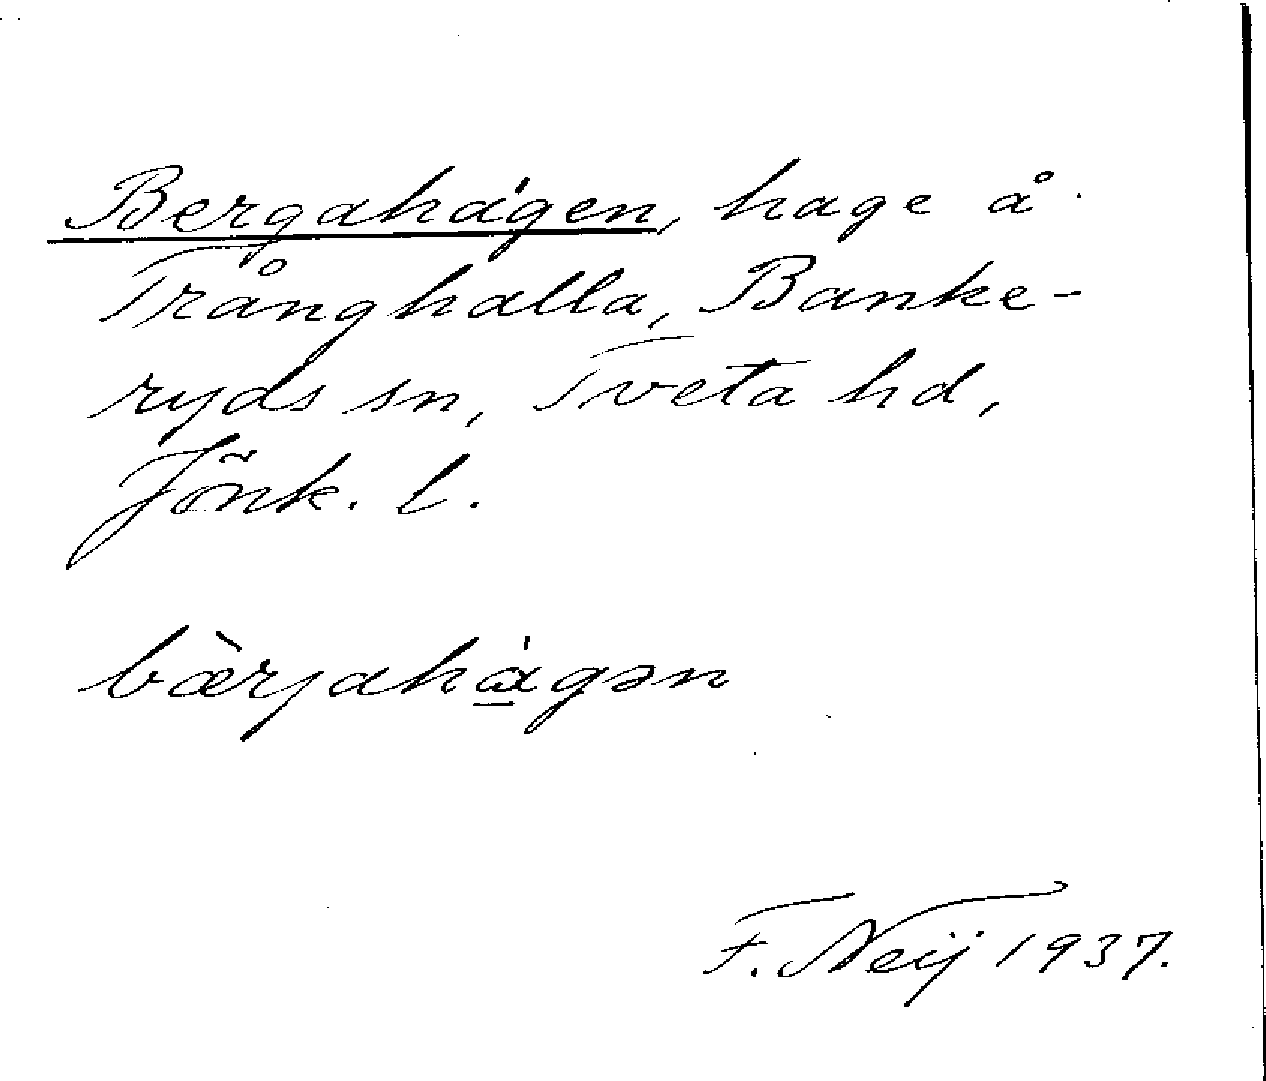 Bergahágen, hage å
Trånghalla, Banke-
ryds sn, Tveta hd,
Jönk. l.
bæ̀rjahàgən
F. Neij 1937.